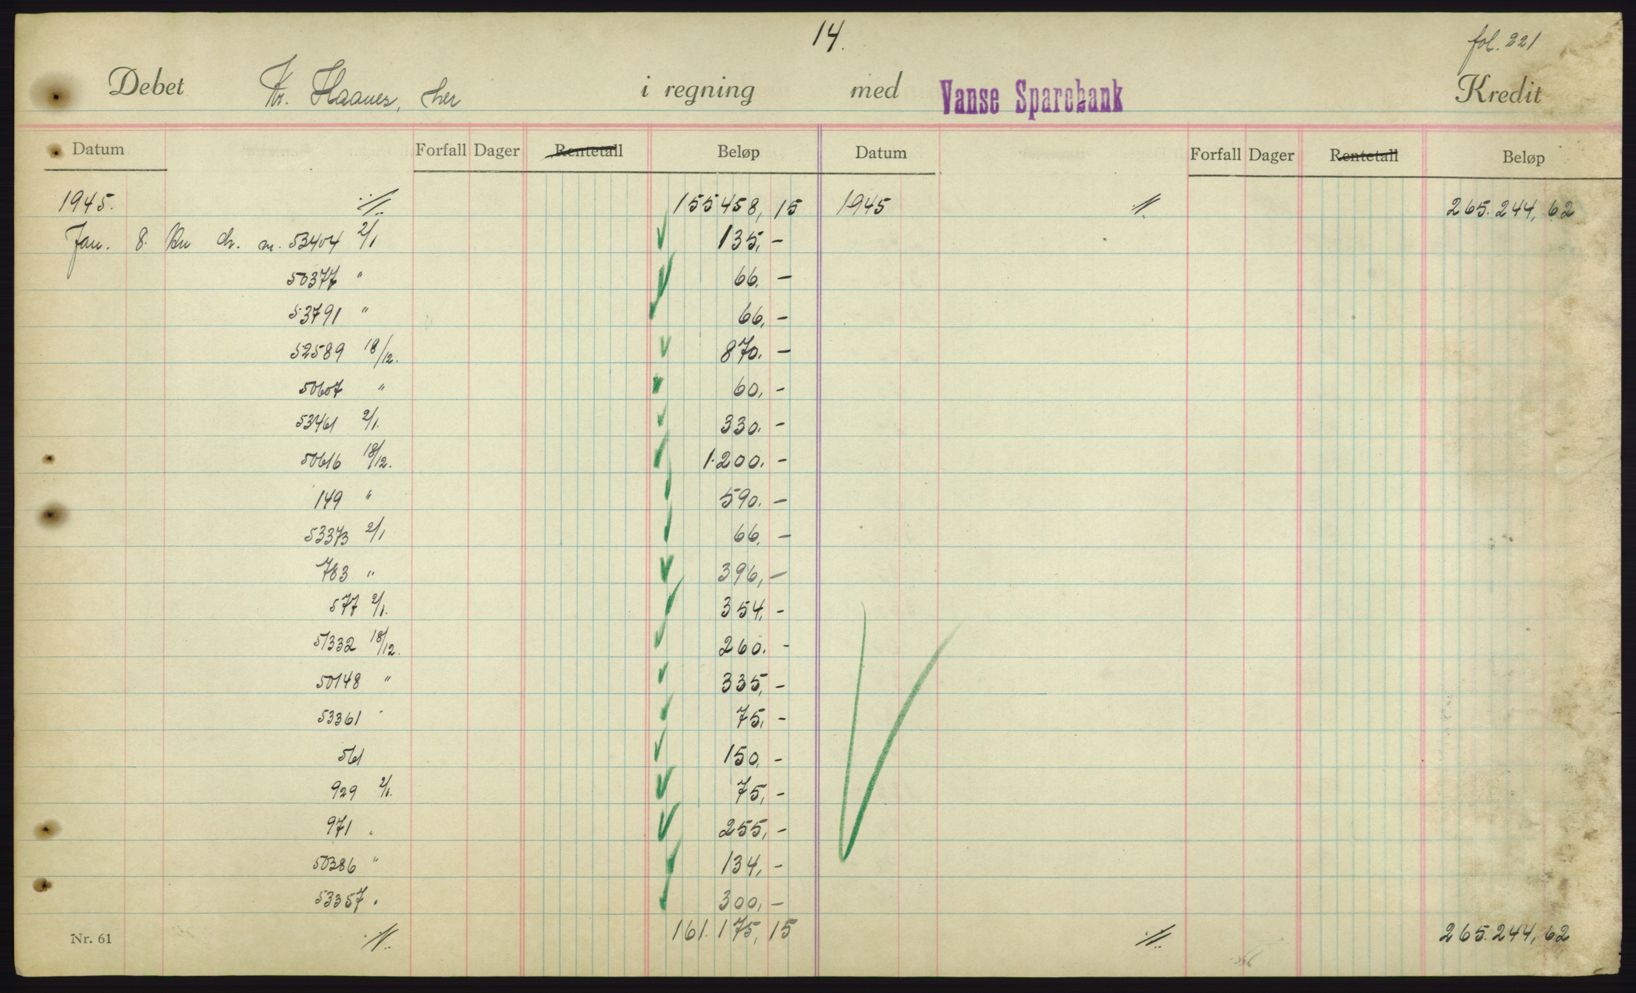 14.
fol. 221
Debet Kr. Haanes, her i regning med Vanse Sparebank Kredit
Datum Forfall Dager Rentetall Beløp Datum Forfall Dager Rentetall Beløp
1945. ·//. 155458,15 1945 ·//. 265.244,62
Jan. 8. ch. nr. 53404 2/1 135,-
50377 " 66,-
53791 " 66,-
52589 18/12. 870.-
50607 " 60,-
53461 2/1. 330.-
50616 18/12. 1.200.-
149 " 590.-
53373 2/1 66.-
783 " 396,-
577 2/1. 354,-
51332 18/12. 260.-
50148 " 335,-
53361 " 75,-
561 150,-
929 2/1. 75,-
971 " 255,-
50386 " 134,-
53357 " 300,-
Nr. 61 ·//. 161.175,15 ·//. 265.244,62